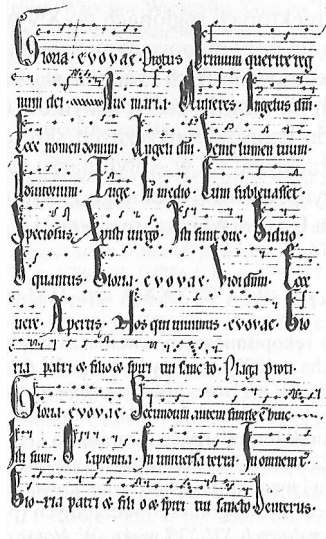 Gloria · e v o v a e · Protus Primum querite reg
num dei · Aue maria · Mulieres · Angelus dñi ·
Ecce nomen domini · Angeli dñi · Venit lumen tuum ·
Euge · In medio · Cum subleuasset
Speciosus · virgo · Isti sunt
O quantus · Gloria · e v o v a e · Ecce
uere · Apertis · Nos qui uiuimus · e v o v a e · Glo
ria patri & filio & spiri tui sancto · Plaga proti ·
Gloria · e v o v a e · Secundum autem simile ē huic
Isti sunt · O sapientia · In uniuersa terra · In omnem t̄
Glo-ria patri & fili o & spiri tui sancto Deuterus ·